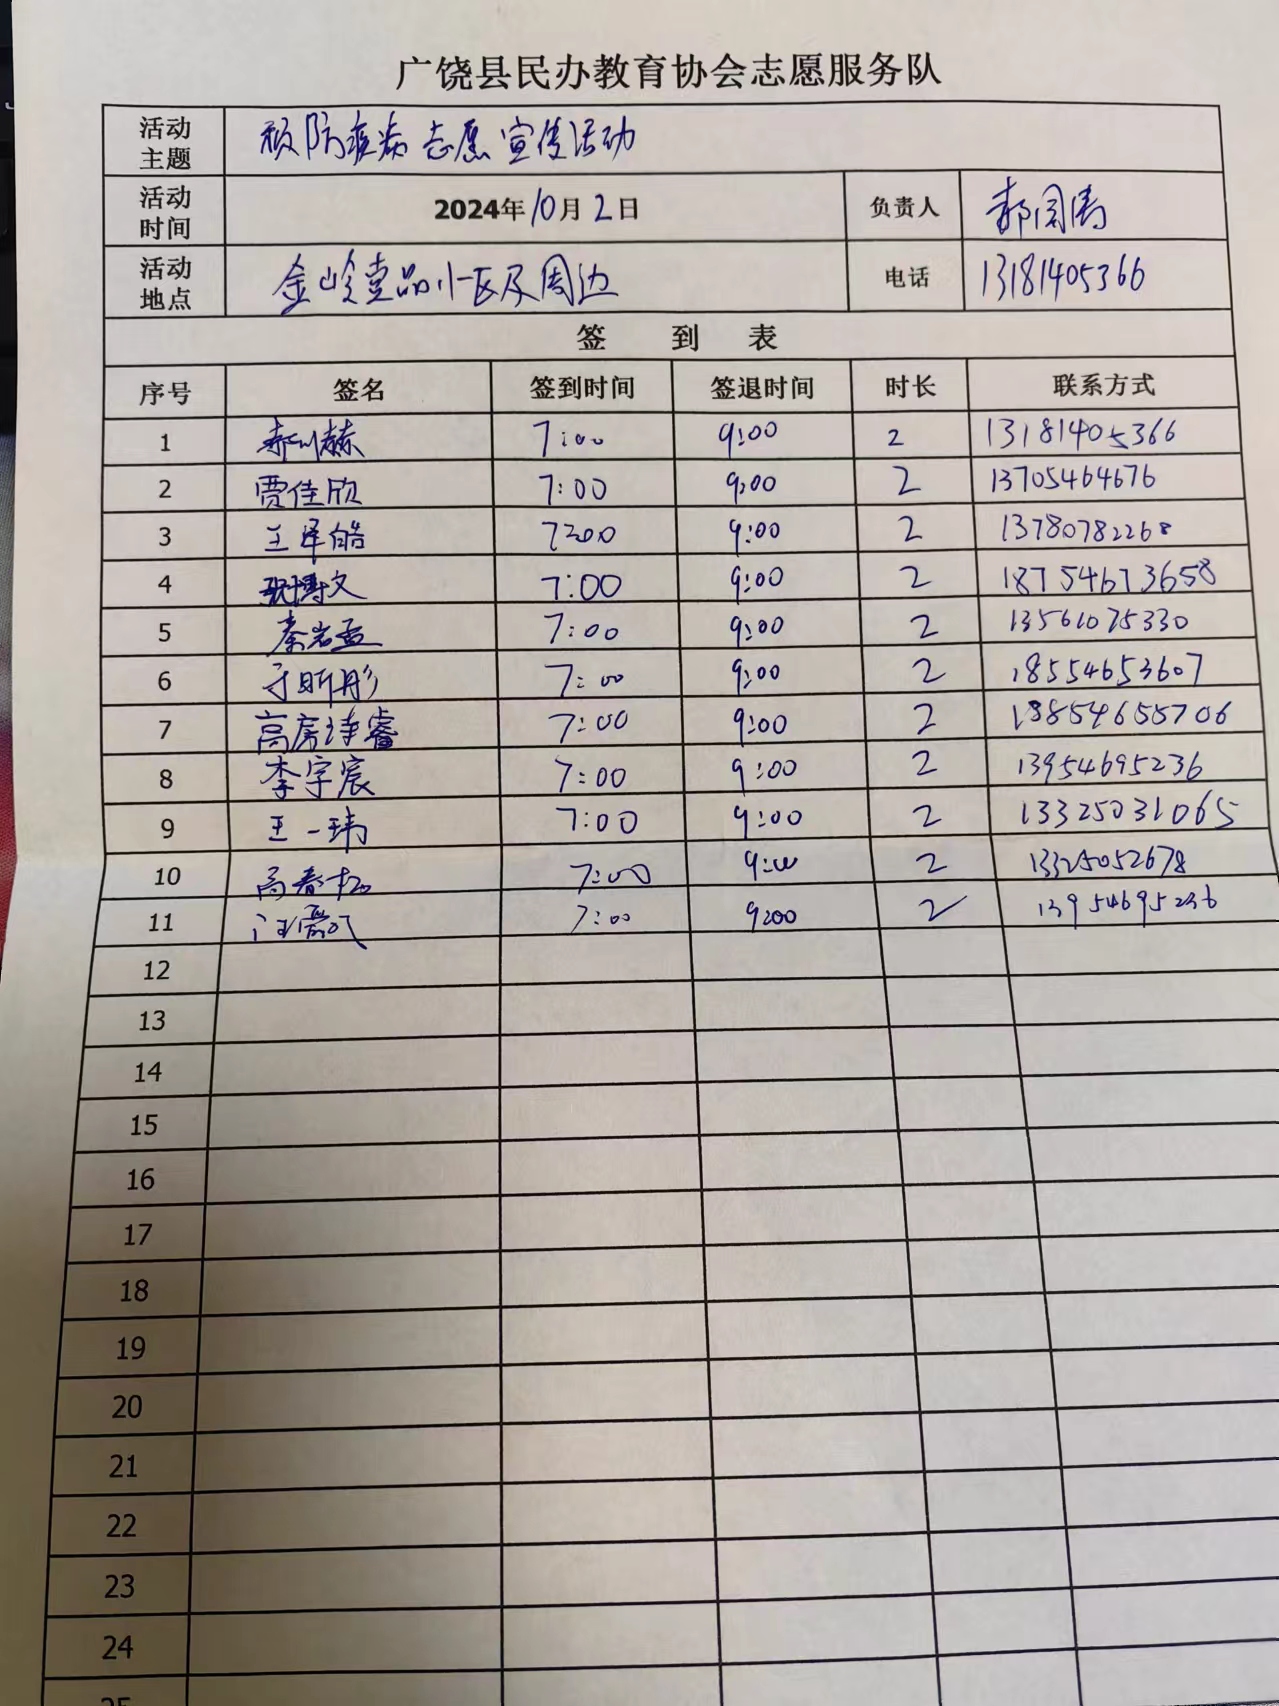 广饶县民办教育协会志愿服务队
活动主题 预防疾病志愿宣传活动
活动时间 2024年10月2日 负责人 郝国涛
活动地点 金岭壹品小区及周边 电话 13181405366
签到表
序号 签名 签到时间 签退时间 时长 联系方式
1 7:00 9:00 2 13181405366
2 贾佳欣 7:00 9:00 2 13705464676
3 王泽皓 7:00 9:00 2 13780782268
4 博文 7:00 9:00 2 18754673658
5 秦岩孟 7:00 9:00 2 13561075330
6 于昕彤 7:00 9:00 2 18554653607
7 高房诗睿 7:00 9:00 2 13854655706
8 李宇宸 7:00 9:00 2 13954695236
9 王一玮 7:00 9:00 2 13325031065
10 高春 7:00 9:00 2 13325052678
11 7:00 9:00 2 13954695236
12
13
14
15
16
17
18
19
20
21
22
23
24
25